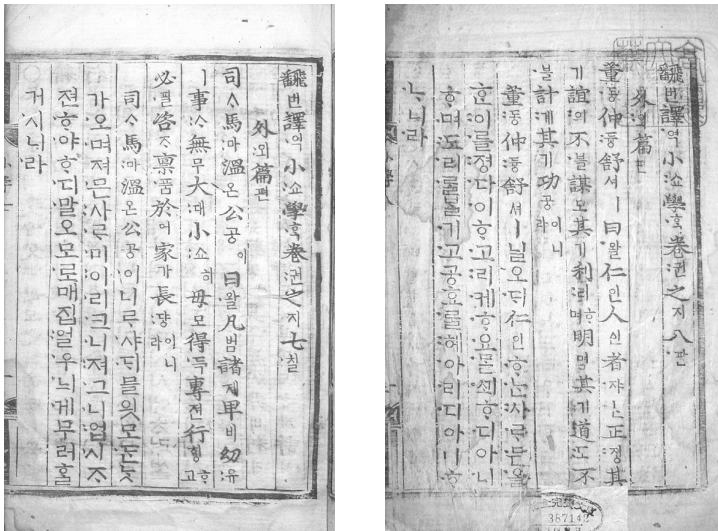 飜번譯역小쇼學ᄒᆞᆨ卷권之지七칠
外외篇편
司ᄉᆞ馬마溫온公공이曰왈凡범諸졔卑비幼유
ㅣ事ᄉᆞ無무大대小쇼히毋모得득專젼行ᄒᆡᆼᄒᆞ고
必필咨ᄌᆞ稟품於어家가長댱이니라
司ᄉᆞ馬마溫온公공이니ᄅᆞ샤ᄃᆡ믈읫모ᄃᆞᆫᄂᆞᆺ
가오며져믄사ᄅᆞ미이리그니져그니업시ᄌᆞ
젼ᄒᆞ야ᄒᆞ디말오모로매집얼우늬게무러ᄒᆞᆯ
거시니라
飜번譯역小쇼學ᄒᆞᆨ卷권之지八판
外외篇편
董동仲듕舒셔ㅣ曰왈仁인人ᅀᅵᆫ者쟈ᄂᆞᆫ正졍其
기誼의不블謀모其기利리ᄒᆞ며明명其기道도不
블計계其기功공이니라
董동仲듕舒셔ㅣ닐오ᄃᆡ仁인ᄒᆞᆫ사ᄅᆞᄆᆞᆫ올
ᄒᆞᆫ이ᄅᆞᆯ졍다이ᄒᆞ고리케ᄒᆞ요ᄆᆞᆯᄭᅬᄒᆞ디아니
ᄒᆞ며도리ᄅᆞᆯᄇᆞᆯ기고공효ᄅᆞᆯ혜아리디아니ᄒᆞ
ᄂᆞ니라
387142